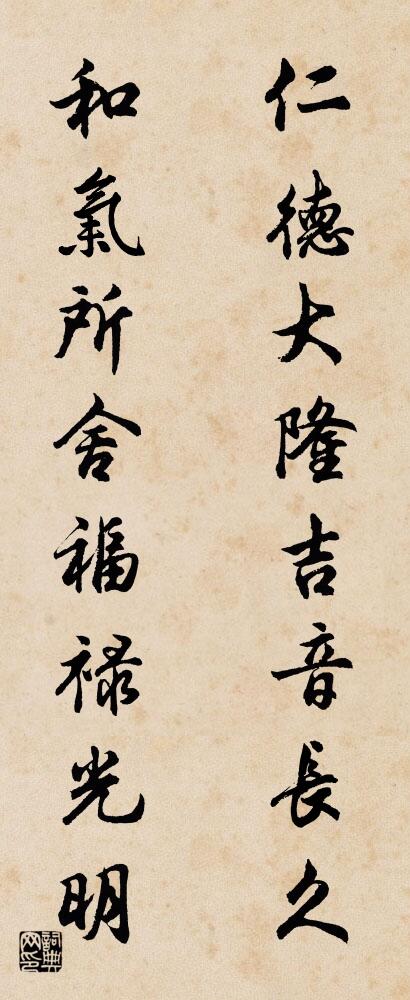 仁德大隆吉音長久
和氣所舍福祿光明
詞典网印